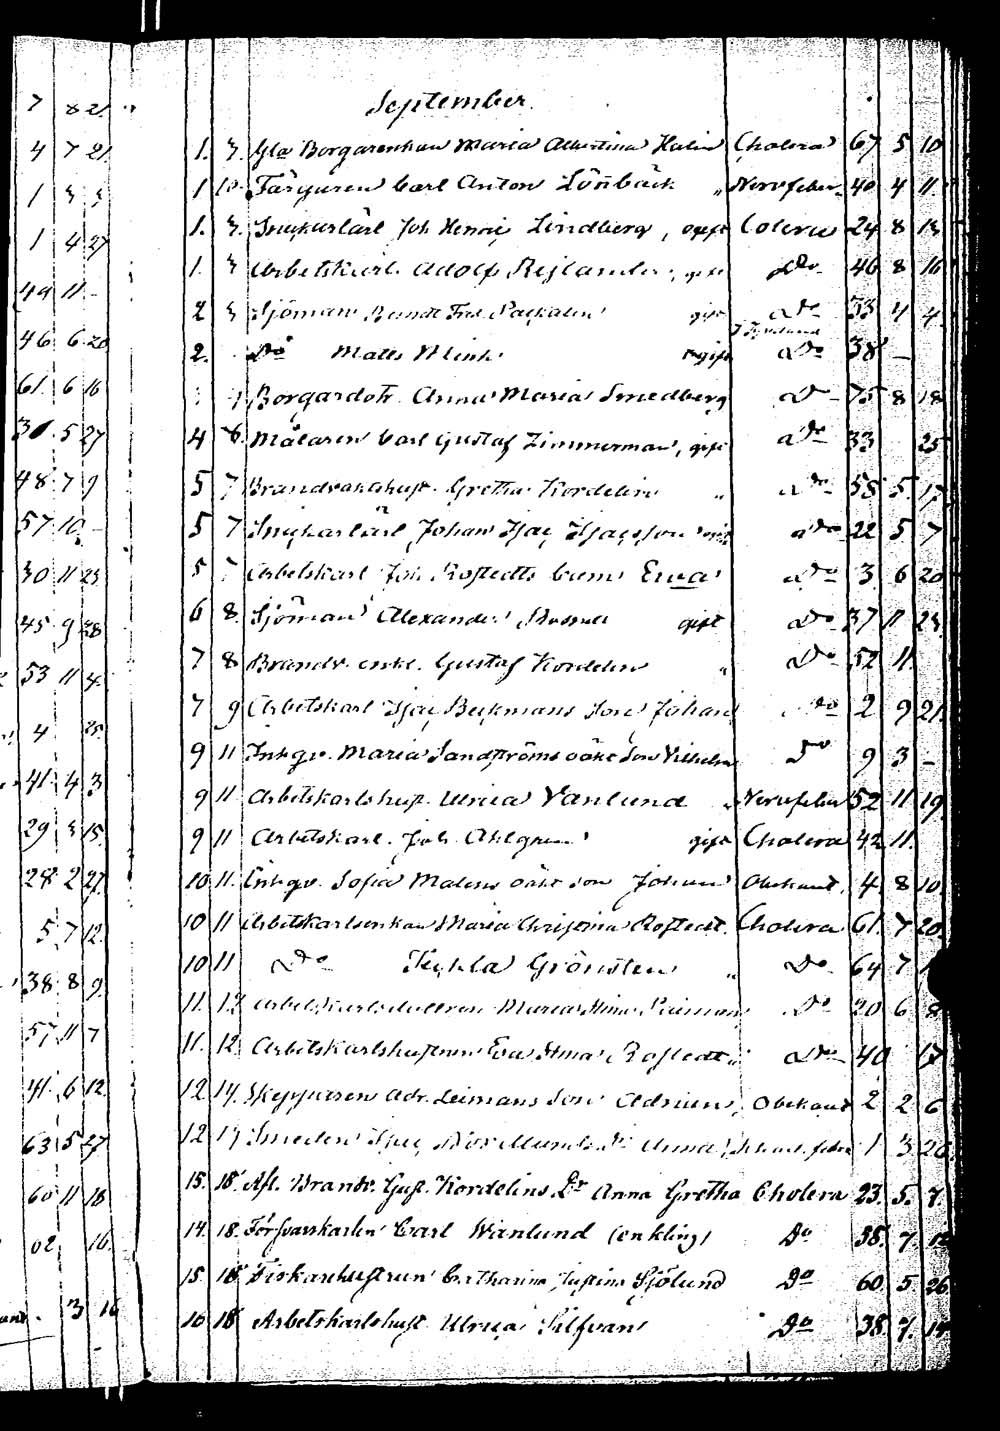 7 8 21
4 7 21
1 3 3
1 4 27
49 11 -
46 6 20
61 6 16
30 5 27
48 7 9
57 10 -
30 11 23
45 9 28
53 11 4
4 25
41 4 3
29 3 15
28 2 27
5 7 12
38 8 9
57 11 7
41 6 12
63 5 27
60 11 18
62 16
3 16
September
1. 3. Gla Borgarenkan Maria Albertina Halin Cholera 67 5 10
1 10 Färgaren Carl Anton Lönbäck " Nervfeber 40 4 11
1. 3. Snickarlärl Joh Henric Lindberg, ogift Colera 24 8 13
1. 3 Arbetskarl Adolf Rejlander, gift Do 46 8 16
2 3 Sjöman Fred. gift Do 33 4 4
2. Do Matts Mink ogift Do 38 -
Borgardotr Anna Maria Smedberg Do 75 8 18
4 6. Målaren Carl Gustaf Zimmerman, gift Do 33 25
5 7 Brandvaktshust. Gretha Kordelin " Do 58 5 17
5 7 Snickarlärl Johan Isac Isacsson Do 22 5 7
5 7 Arbetskarl Joh Rostedts barn Ewa Do 3 6 20
6 8. Sjöman Alexander gift Do 37 11 23
7 8 Brandv. enkl. Gustaf Kordelin " Do 52 11
7 9 Arbetskarl Isac Beckmans Son Johan Do 2 9 21
9 11 Inhgn. Maria Sandströms oäkt Son Vilhelm Do 9 3 -
9 11 Arbetskarlshust. Ulrica Vanlund " Nervfeber 52 11 19
9 11 Arbetskarl. Joh. Ahlgren gift Cholera 42 11.
10 11. Inhgn. Sofia Malens oäkt son Johan Obekant 4 8 10
10 11 Arbetskarlsenkan Maria Christina Rostedt. Cholera 61. 7 20
10 11 Do Thekla Grönsten " Do 64 7
11. 12 Arbetskarlsdottren Maria Stina Do 20 6 8
11. 12 Arbetskarlshustrun Eva Stina Rostedt " Do 40 17
12 14. Skepparen Adr. Leimans Son Adrian, Obekant 2 2 6
12 Smeden Anna 1 3 26
15. 18. Afl. Brandv. Gust. Kordelins Dr Anna Gretha Cholera 23. 5. 7.
14. 18. Försvarskarlen Carl Wanlund (enkling) Do 38. 7. 12
15 18 Fiskarehustrun Catharina Justina Sjölund Do 60 5 26
10 18 Arbetskarlshust Ulrica Silfvan Do 38. 7. 14